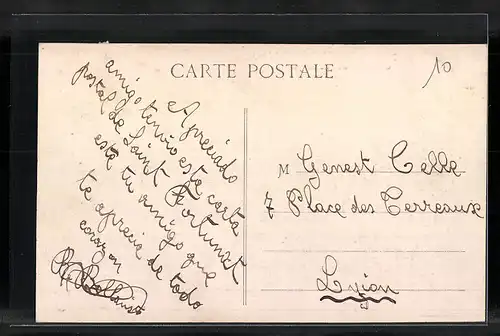 CARTE POSTALE
10
Apreciado
amigo te nvio esta carta
postal de Saint Fortunat
esta tu amigo que
te aprecia de todo
corazon
M Genest Celle
7 Place des Terreaux
Lyon